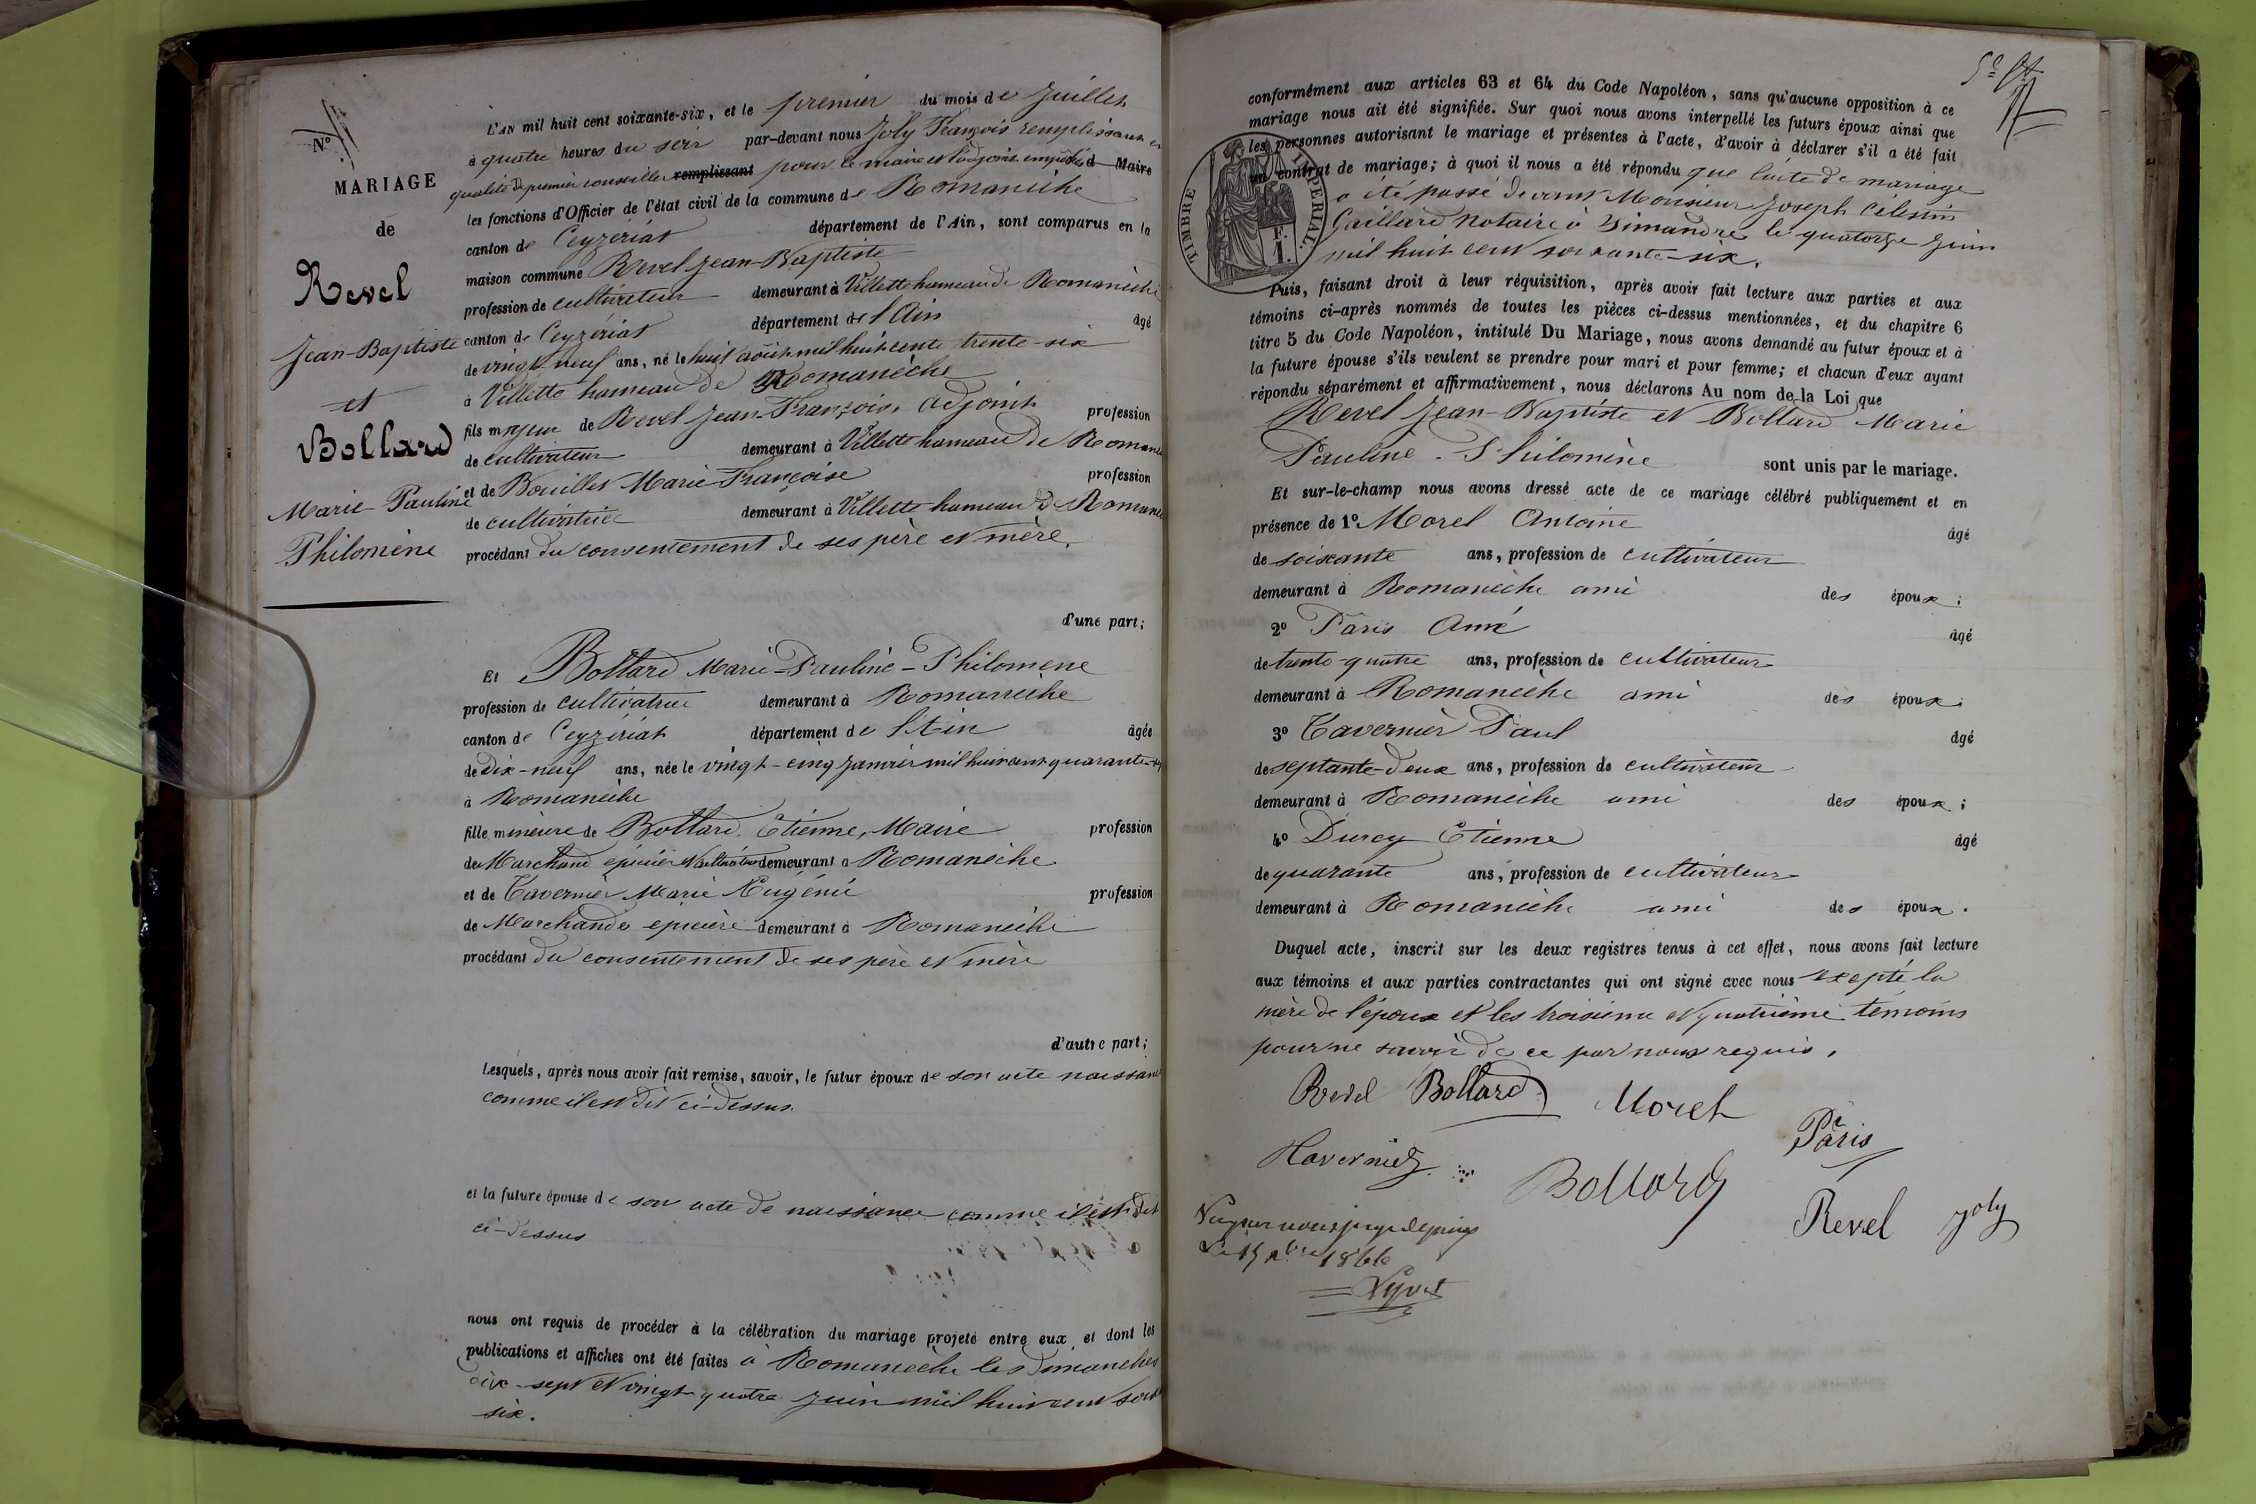 Nº
MARIAGE
de
Revel
Jean-Baptiste
et
Bollard
Marie Pauline
Philomène
L'AN mil huit cent soixante-six, et le premier du mois de Juillet
à quatre heures du soir par-devant nous Joly François remplissant en
qualité de premier conseiller remplissant pour le maire et l'adjoint empêchés d Maire
les fonctions d'Officier de l'état civil de la commune de Romanèche
canton de Ceyzériat département de l'Ain, sont comparus en la
maison commune Revel Jean-Baptiste
profession de cultivateur demeurant à Villette hameau de Romanèche
canton de Ceyzériat département de l'Ain âgé
de vingt neuf ans, né le huit août mil huit cent trente-six
à Villette hameau de Romanèche
fils majeur de Revel Jean-François, adjoint profession
de cultivateur demeurant à Villette hameau de Romanè
et de Bouillet Marie Françoise profession
de cultivatrice demeurant à Villette hameau de Romanè
procédant du consentement de ses père et mère,
d'une part;
Et Bollard Marie-Pauline-Philomène
profession de cultivatrice demeurant à Romanèche
canton de Ceyzériat département de l'Ain âgée
de dix-neuf ans, née le vingt-cinq janvier mil huit cent quarante-sept
à Romanèche
fille mineure de Bollard Etienne, Maire profession
de Marchand épicier et cultivateur demeurant à Romanèche
et de Tavernier Marie Eugénie profession
de Marchande épicière demeurant à Romanèche
procédant du consentement de ses père et mère
d'autre part;
Lesquels, après nous avoir fait remise, savoir, le futur époux de son acte naissance
comme il est dit ci-dessus.
et la future épouse de son acte de naissance comme il est dit
ci-dessus
nous ont requis de procéder à la célébration du mariage projeté entre eux, et dont les
publications et affiches ont été faites à Romanèche les dimanches
dix-sept et vingt quatre juin mil huit cent soix
six.
conformément aux articles 63 et 64 du Code Napoléon, sans qu'aucune opposition à ce
mariage nous ait été signifiée. Sur quoi nous avons interpellé les futurs époux ainsi que
les personnes autorisant le mariage et présentes à l'acte, d'avoir à déclarer s'il a été fait
un contrat de mariage; à quoi il nous a été répondu que l'acte de mariage
a été passé devant Monsieur Joseph Célestin
Gaillard Notaire à Simandre le quatorze juin
mil huit cent soixante-six.
TIMBRE IMPERIAL.
F.
1.
Puis, faisant droit à leur réquisition, après avoir fait lecture aux parties et aux
témoins ci-après nommés de toutes les pièces ci-dessus mentionnées, et du chapitre 6
titre 5 du Code Napoléon, intitulé Du Mariage, nous avons demandé au futur époux et à
la future épouse s'ils veulent se prendre pour mari et pour femme; et chacun d'eux ayant
répondu séparément et affirmativement, nous déclarons Au nom de la Loi que
Revel Jean-Baptiste et Bollard Marie
Pauline-Philomène sont unis par le mariage.
Et sur-le-champ nous avons dressé acte de ce mariage célébré publiquement et en
présence de 1º Morel Antoine âgé
de soixante ans, profession de cultivateur
demeurant à Romanèche ami des époux;
2º Pâris Aimé âgé
de trente-quatre ans, profession de cultivateur
demeurant à Romanèche ami des époux;
3º Tavernier Paul âgé
de septante-deux ans, profession de cultivateur
demeurant à Romanèche ami des époux;
4º Durcy Etienne âgé
de quarante ans, profession de cultivateur
demeurant à Romanèche ami des époux.
Duquel acte, inscrit sur les deux registres tenus à cet effet, nous avons fait lecture
aux témoins et aux parties contractantes qui ont signé avec nous excepté la
mère de l'époux et les troisième et quatrième témoins
pour ne savoir de ce par nous requis.
Revel Bollard Morel Pâris
Tavernier Bollard Revel Joly
Vu par nous juge de paix
Le 15 1866